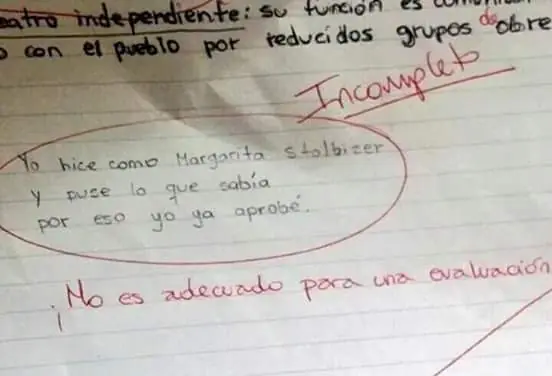 eatro independiente: su función es
o con el pueblo por reducidos grupos de obre
Incompleto
Yo hice como Margarita Stolbizer
y puse lo que sabía
por eso yo ya aprobé.
¡No es adecuado para una evaluación